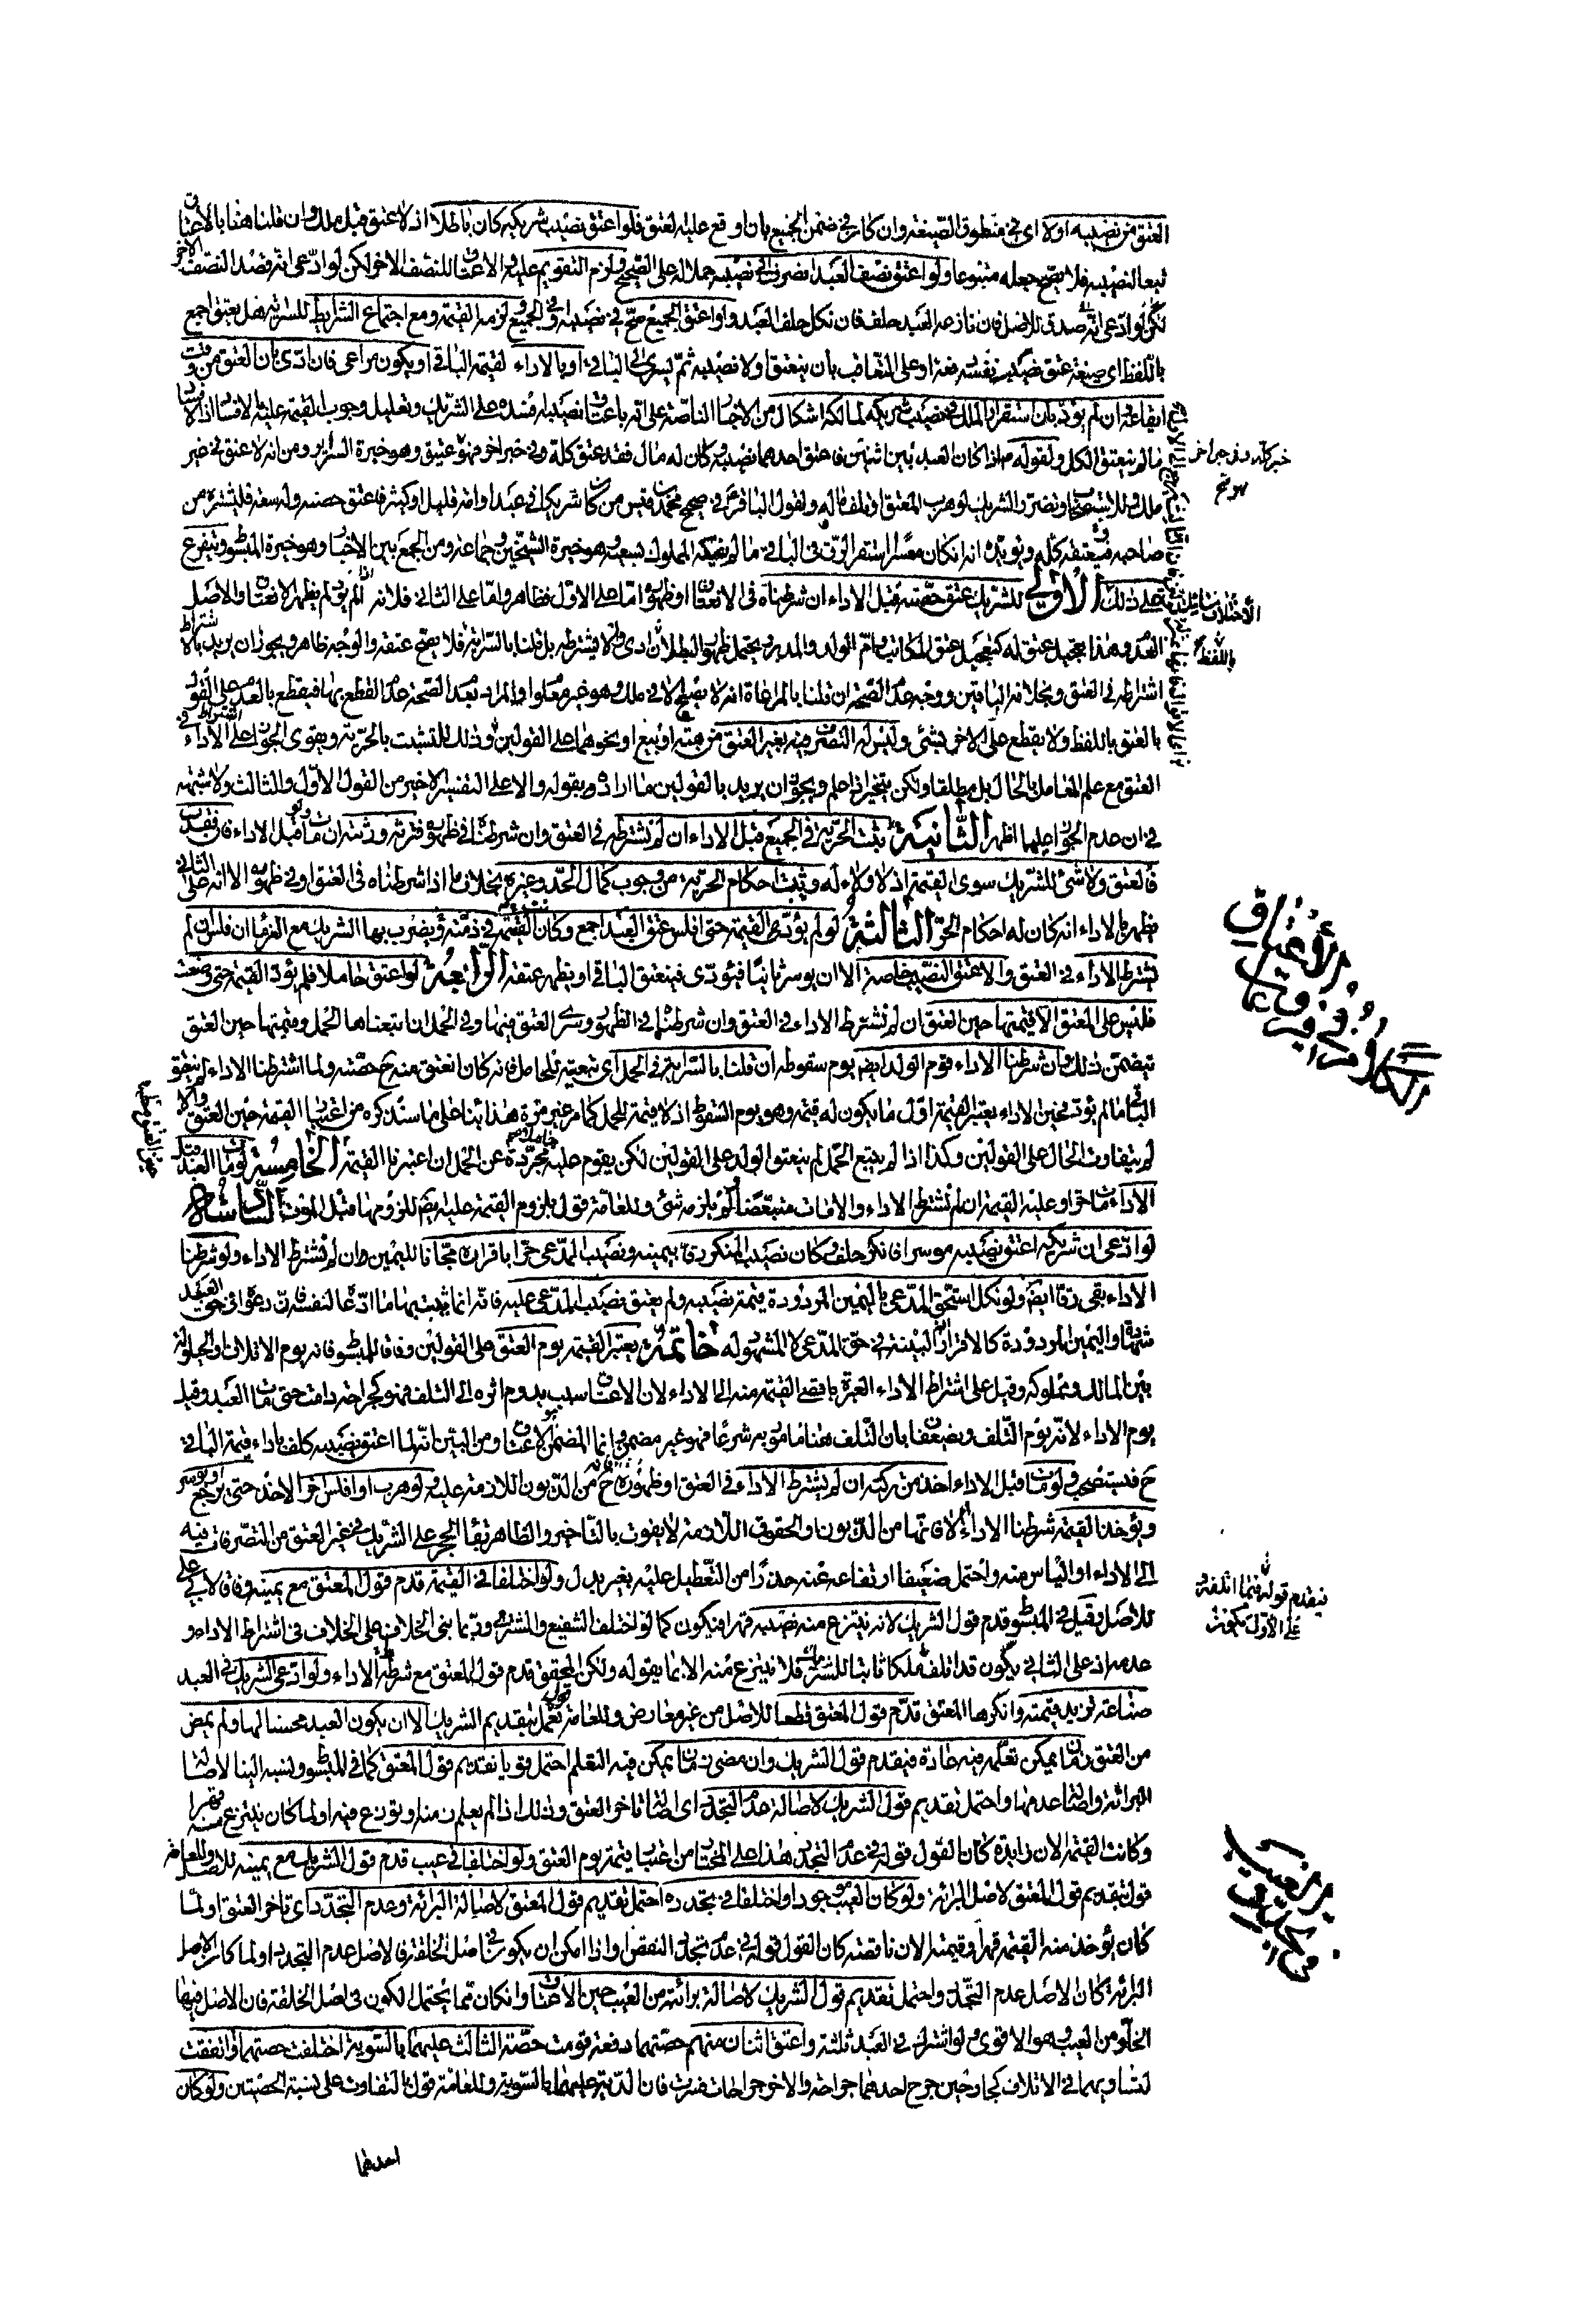 العتق من نصيبه اولا اى في منطوق الصيغة وان كان في ضمن الجميع بان اوقع عليه لعتق فلو اعتق نصيب شريكه كان باطلا اذ لا عتق قبل ملك وان قلنا هنا بالاعتاق
تبعا لنصيبه فلا يصح جعله متبوعا ولو اعتق نصف العبد انصرف الى نصيبه حملا له على الصحيح ولزم التقويم عليه والاعتاق للنصف الاخر لكن لو ادعى انه قصد النصف الاخر
لكن لو ادعى انه صدق للاصل فان نازعه العبد حلف فان نكل حلف العبد ولو اعتق الجميع صح في نصيبه وفي الجميع ولزمه القيمة ومع اجتماع الشرايط للسراية هل يعتق اجمع
باللفظ اى صيغة عتق نصيبه نفسه معه او على التعاقب بان ينعتق اولا نصيبه ثم يسرى الى الباقي او بالاداء لقيمة الباقي او يكون مراعى فان ادى بان العتق من وقت
ايقاعه وان لم يؤد بان استقرار الملك في نصيب شريكه لمالكه اشكال من الاخبار الناصة على انه باعتاق نصيبه افسده على الشريك وتعليل وجوب القيمة عليه بالافساد اذ لا افساد
ما لم ينعتق الكل ولقوله اذا كان العبد بين اثنين فاعتق احدهما نصيبه وكان له مال فقد عتق كله وفي خبر اخر فهو عتيق وهو خيرة السرائر ومن انه لا عتق في غير
ملك وللاستصحاب وتضرر الشريك لو هرب المعتق او تلف ماله ولقول الباقر في صحيح محمد بن قيس من كان شريكا في عبد او امة قليل او كثير فاعتق حصته وله سعة فليشتره من
صاحبه فيعتقه كله ويؤيده انه ان كان معسرا استقر الرق في الباقي ما لم يفكه المملوك بسعيه وهو خيرة الشيخين وجماعة ومن الجمع بين الاخبار وهو خيرة المبسوط ويتفرع
على ذلك الاولى للشريك عتق حصته قبل الاداء ان شرطناه في الانعتاق او ظهوره اما على الاول فظاهر واما على الثاني فلانه ما لم يؤد لم يظهر الانعتاق والاصل
العدم وهذا تعجيل عتق له كتعجيل عتق المكاتب وام الولد والمدبر ويحتمل ظهور البطلان ان ادى والا فيشترطه بل قلنا بالسراية فلا يصح عتقه والوجه ظاهر ويجوز ان يريد بالاشتراط
اشتراطه في العتق وبخلافه الباقيين ووجه عدم الصحة ان قلنا بالمراعاة انه لا يصلح الا في ملك وهو غير معلوم والمراد بعدم الصحة عدم القطع بها فيقطع بالعدم على القول
بالعتق باللفظ ولا يقطع على الاخر بشئ وليس له التصرف فيه بغير العتق من هبة او بيع او نحوهما على القولين وذلك للتشبث بالحرية ويقوى الجواز على الاداء اشتراط في
العتق مع علم المعامل بالحال بل مطلقا ولكن يتخير اذا علم ويجوز ان يريد بالقولين ما اراده بقوله والا على التفسير الاخير من القول الاول والثالث ولا شبهة
في ان عدم الجواز عليهما اظهر الثانية يثبت الحرية في الجميع قبل الاداء ان لم نشترطه في العتق وان شرطناه في ظهوره فترثه ورثته ان مات ولو قبل الاداء فان فقدت
فالعتق ولا شئ للشريك سوى القيمة اذ لا ولاء له ويثبت احكام الحرية من وجوب كمال الحد وغيره بخلاف ما اذا شرطناه في العتق او في ظهوره الا انه على الثاني
يظهر بالاداء انه كان له احكام الحر الثالثة لو لم يؤد القيمة حتى افلس عتق العبد اجمع وكان القيمة في ذمته ويضرب بها الشريك مع الغرماء ان فلس ان لم
نشترط الاداء في العتق والا عتق النصيب خاصة الا ان يوسر ثانيا فيؤدى فينعتق الباقي او يظهر عتقه الرابعة لو اعتق حاملا فلم يؤد القيمة حتى وضعت
فليس على المعتق الا قيمتها حين العتق ان لم نشترط الاداء في العتق وان شرطناه في الظهور وسرى العتق فيها وفي الحمل ان اتبعناها الحمل وقيمتها حين العتق
تتضمن ذلك وان شرطنا الاداء قوم الولد ايضا يوم سقوطه ان قلنا بالسراية في الحمل اى تبعيته للحامل فانه كان انعتق منه ح حصته ولما اشترطنا الاداء لم ينعتق
الباقي ما لم يؤد فحين الاداء يعتبر القيمة اول ما يكون له قيمة وهو يوم السقوط اذ لا قيمة للحمل كما مر غير مرة هذا بناء على ما سنذكره من اعتبار القيمة حين العتق والا
لم يتفاوت الحال على القولين وكذا اذا لم يتبع الحمل لم ينعتق الولد على القولين لكن يقوم عليه مجردة عن الحمل ان اعتبرنا القيمة الخامسة لو مات العبد قبل
الاداء مات حرا وعليه القيمة ان لم نشترط الاداء والا مات متبعضا لم يلزمه شئ وللعامة قول بلزوم القيمة عليه ايضا للزومها قبل الموت السادسة
لو ادعى ان شريكه اعتق نصيبه موسرا فانكر حلف وكان نصيب المنكر رقا بيمينه ونصيب المدعى حرا باقراره مجانا لليمين وان لم نشترط الاداء ولو شرطنا
الاداء بقى رقا ايضا ولو نكل استحق المدعى باليمين المردودة قيمة نصيبه ولم يعتق نصيب المدعى عليه فانه انما يثبت بها ما ادعاه لنفسه فان دعواه في حق العبد
شهادة واليمين المردودة كالاقرار او البينة في حق المدعى لا المشهود له خاتمة يعتبر القيمة يوم العتق على القولين وفاقا للمبسوط فانه يوم الاتلاف والحيلولة
بين المالك ومملوكه وقيل على اشتراط الاداء العبرة باقصى القيمة منه الى الاداء لان الاعتاق سبب يدوم اثره الى التلف فهو كجراحة دامت حتى مات العبد وقيل
يوم الاداء لانه يوم التلف ويضعفان بان التلف هنا مأمور به شرعا فهو غير مضمون وانما المضمن الاعتاق ومن البين انه لما اعتق نصيبه كلف باداء قيمة الباقي
ح فيستصحب ولو مات قبل الاداء اخذ من تركته ان لم نشترط الاداء في العتق او ظهوره ح من الديون اللازمة عليه ولو هرب او افلس اخر الاخذ حتى يرجع او يوسر
ويؤخذ القيمة شرطنا الاداء ام لا فانها من الديون والحقوق اللازمة لا يفوت بالتاخير والظاهر بقاء الحجر على الشريك في غير العتق من التصرفات فيه
الى الاداء او الياس منه واحتمل ضعيفا ارتفاعه عنه حذرا من التعطيل عليه بغير بدل ولو اختلفا في القيمة قدم قول المعتق مع يمينه وفاقا لابى على
للاصل وقيل في المبسوط قدم قول الشريك لانه ينتزع منه نصيبه قهرا فيكون كما لو اختلف الشفيع والمشترى وربما بنى الخلاف على الخلاف في اشتراط الاداء و
عدمه اذ على الثاني يكون قد اتلف ملكا ثابتا للشريك فلا ينتزع منه الا بما يقوله ولكن المحقق قدم قول المعتق مع شرطه الاداء ولو ادعى الشريك في العبد
صناعة تزيد قيمته وانكرها المعتق قدم قول المعتق قطعا للاصل من غير معارض وللعامة قول بتقديم الشريك الا ان يكون العبد محسنا لها ولم يمض
من العتق زمان يمكن تعلمه فيه عادة فيقدم قول الشريك وان مضى زمان يمكن فيه التعلم احتمل قويا تقديم قول المعتق كما في المبسوط ونسبه الينا لاصالة
البرائة واصالة عدمها واحتمل تقديم قول الشريك لاصالة عدم التجدد اى اصالة تاخر العتق وذلك اذا لم يعلم زمنه او نوزع فيه او لما كان ينتزع منه قهرا
وكانت القيمة الان زايدة كان القول قوله في عدم التجدد هذا على المختار من اعتبار قيمته يوم العتق ولو اختلفا في عيب قدم قول الشريك مع يمينه للاصل وللعامة
قول بتقديم قول المعتق لاصل البرائة ولو كان العيب موجودا واختلفا في تجدده احتمل تقديم قول المعتق لاصالة البرائة وعدم التجدد اى تاخر العتق او لما
كان يؤخذ منه القيمة قهرا وقيمته الان ناقصة كان القول قوله في عدم تجدد النقص واذا امكن ان يكون في اصل الخلقة فالاصل عدم التجدد او لما كان الاصل
البرائة كان الاصل عدم التجدد واحتمل تقديم قول الشريك لاصالة برائته من العيب حين الاعتاق وان كان مما يحتمل الكون في اصل الخلقة فان الاصل فيها
الخلو من العيب وهو الاقوى ولو اشترك في العبد ثلثة واعتق اثنان منهم حصتهما دفعة قومت حصة الثالث عليهما بالسوية اختلفت حصتهما او اتفقت
لتساويهما في الاتلاف كجارحين جرح احدهما جراحة والاخر جراحات فسرت فان الدية عليهما بالسوية وللعامة قول بالتفاوت على نسبة الحصتين ولو كان
احدهما
فيقدم قوله فيما اتلفه و
على الاول